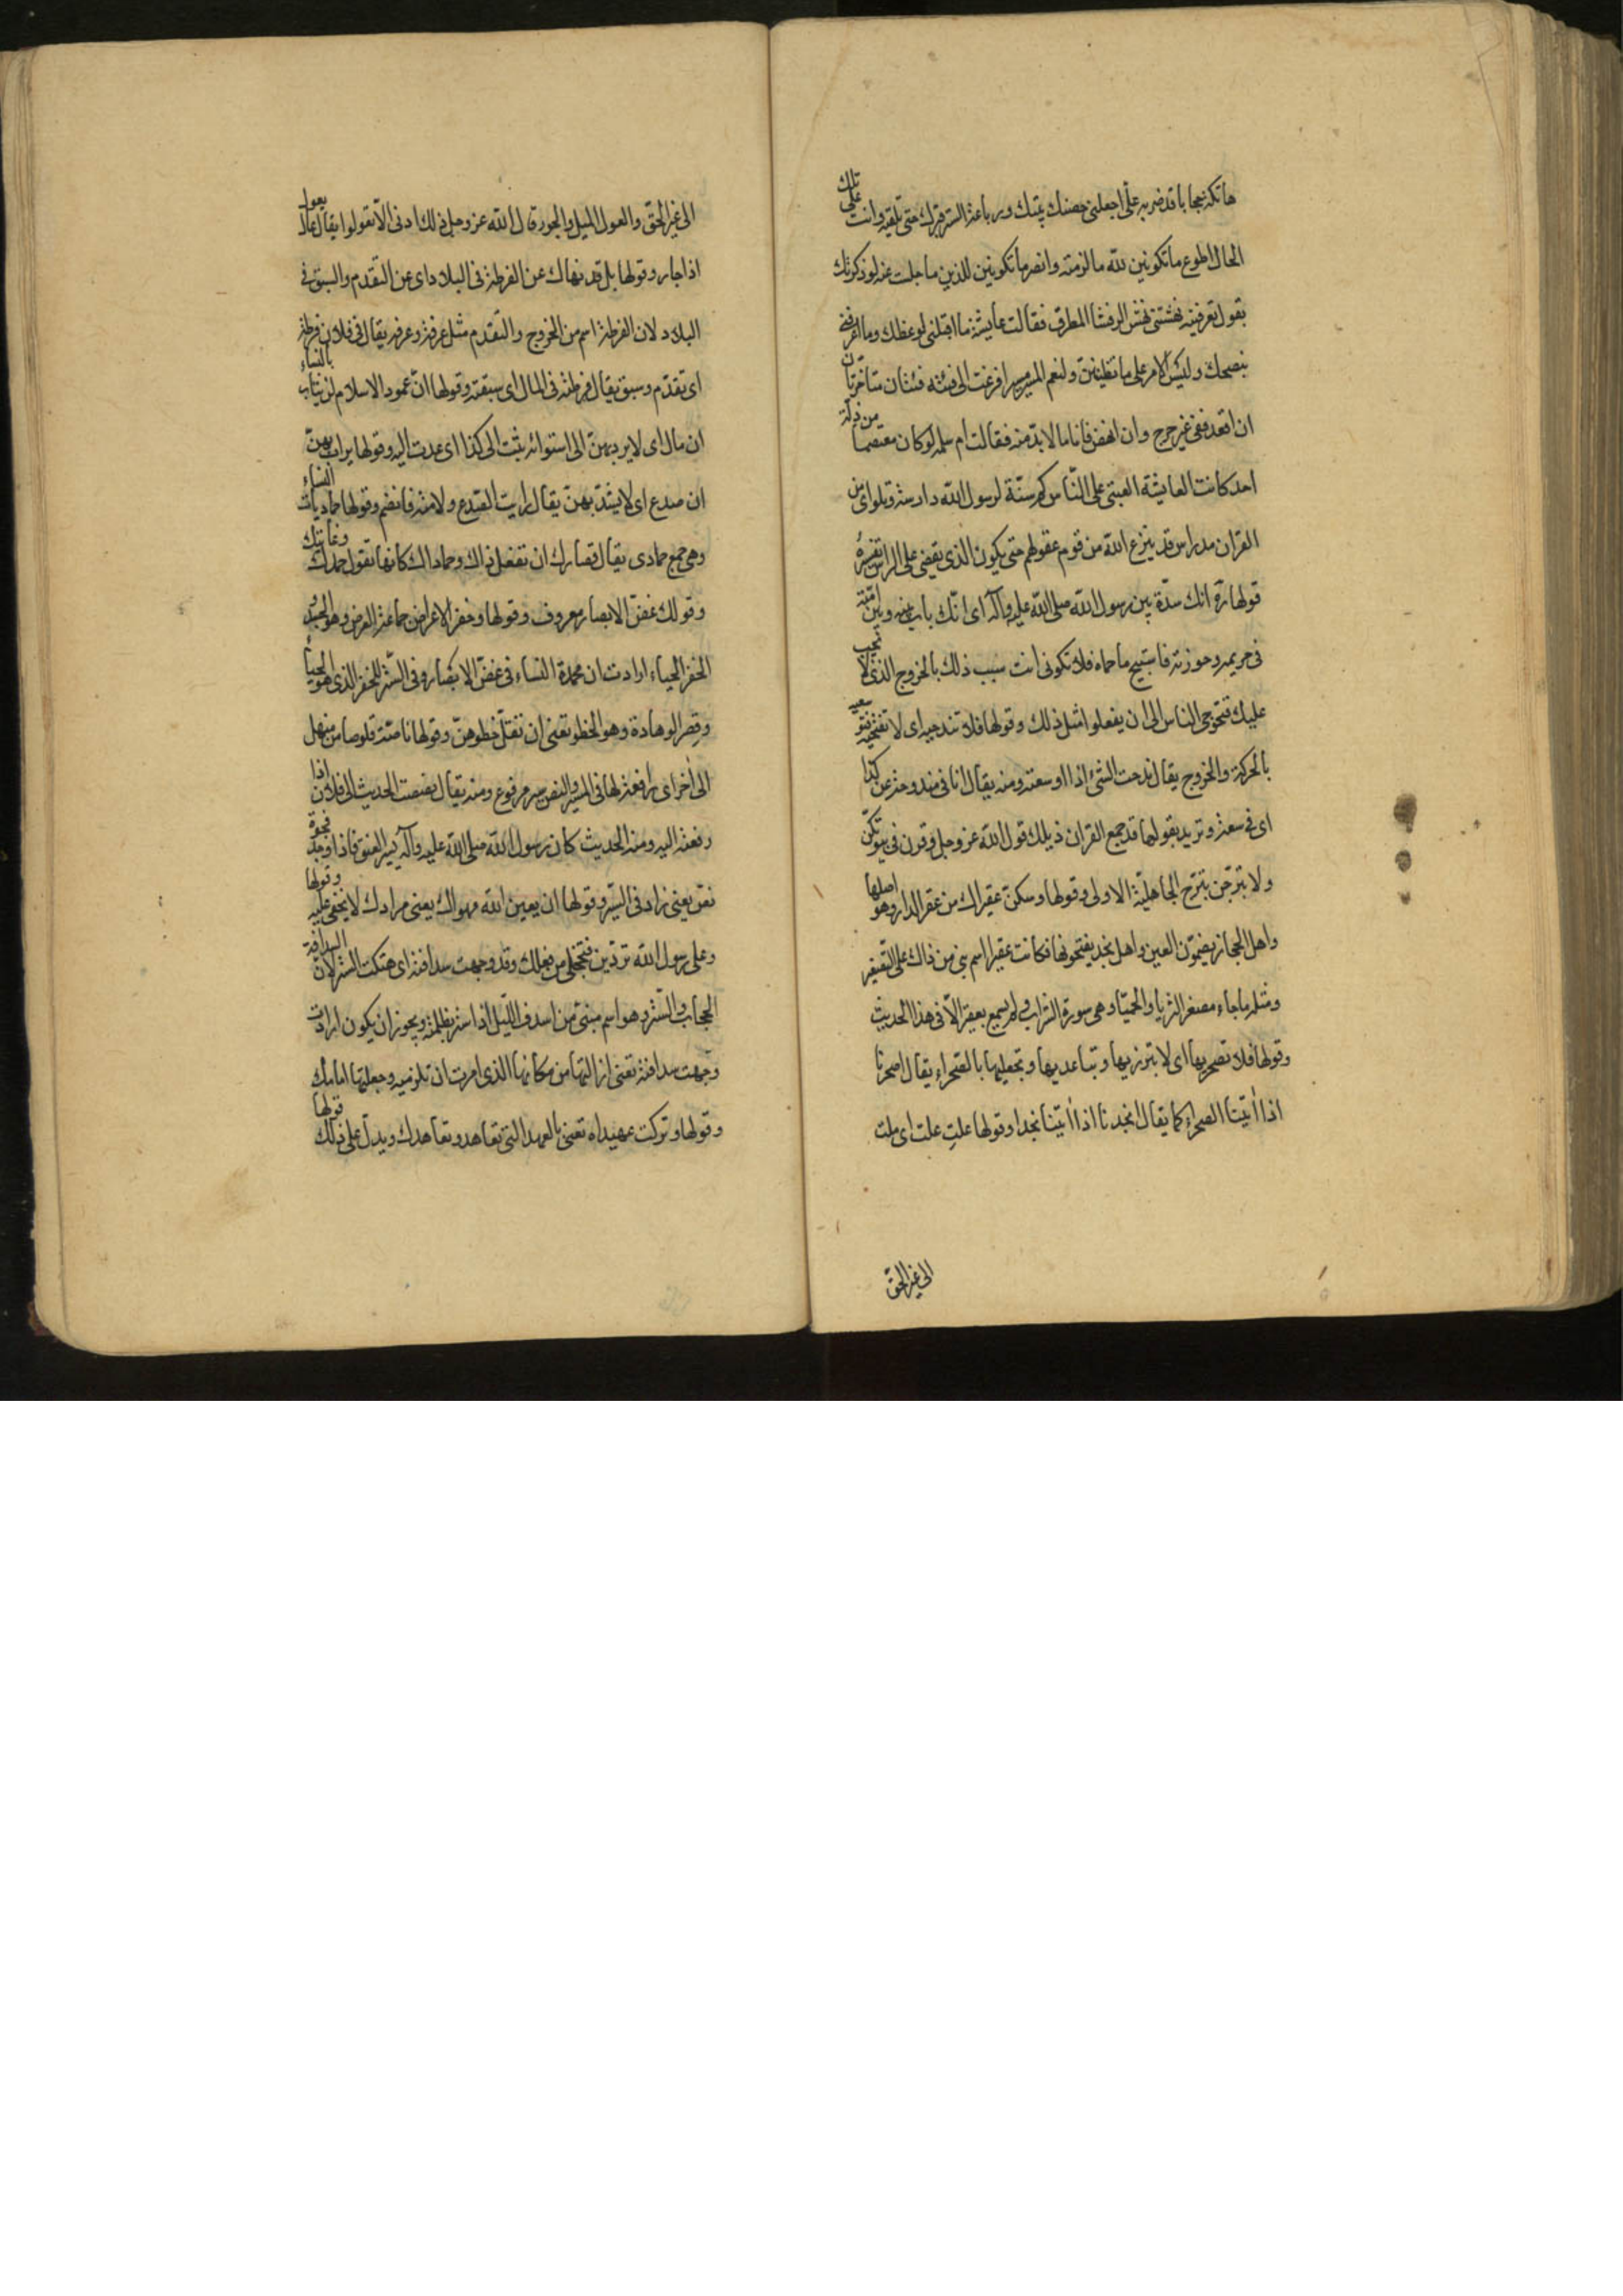 هاتكة حجابا قد ضربه علىّ اجعلى حصنك بيتك ورباعة الستر قبرك حتى تلقيه وانت على تلك
الحال اطوع ما تكونين لله ما لزمته وانصر ما تكونين للدين ما جلست عنه لو ذكرتك
بقول تعرفينه نهشتنى نهش الرقشا المطرق فقالت عايشة ما اقبلنى لوعظك وما اعرفنى
بنصحك وليس الامر على ما تظنين ولنعم المسير مسيرا فزعت الى فيه فئتان متناجزتان
ان اقعد ففى غير حرج وان انهض فانا ما لا بد منه فقالت ام سلمه لو كان معتصما من زلة
احد كانت لعايشة العتبى على الناس كم سنّة لرسول الله دارسة وتلو اى من
القران مدراس قد ينزع الله من قوم عقولهم حتى يكون الذى يقضى على الراس تفسيره
قولها ره انك سدّة بين رسول الله صلى الله عليه وآله اى انّك باب بينه وبين امّته
فى حريمه وحوزته فاستبيح ما حماه فلا تكونى انت سبب ذلك بالخروج الذى لا يجب
عليك فتحوجى الناس الى ان يفعلوا مثل ذلك وقولها فلا تندحيه اى لا تفتحيه فتوسعيه
بالحركة والخروج يقال ندحت الشئ اذا اوسعته ومنه يقال انا فى مندوحة عن كذا
اى فى سعة وتريد بقولها قد جمع القران ذيلك قول الله عز وجل وقرن فى بيوتكن
ولا تبرّجن تبرّج الجاهليّة الاولى وقولها وسكن عقيراك من عقر الدار وهو اصلها
واهل الحجاز يضمّون العين واهل نجد يفتحونها فكانت عقيرا اسم بنى من ذاك على التصغير
ومثله ما جاء مصغرا الثريا والحميّا وهى سورة الشراب ولم يسمع بعقيرا الا فى هذا الحديث
وقولها فلا تصحريها اى لا تبرزيها وتباعديها وتجعليها بالصحراء يقال اصحرنا
اذا اتينا الصحراء كما يقال انجدنا اذا اتينا نجدا وقولها علت علت اى ملت
الى غير الحق
الى غير الحق والعول الميل والجور قال الله عز وجل ذلك ادنى الا تعولوا يقال عال يعول
اذا جار وقولها بل قد نهاك عن الفرطة فى البلاد اى عن التقدم والسبق فى
البلاد لان الفرطة اسم من الخروج والتقدم مثل غرفة وغرفه يقال فى فلان فرطة
اى تقدم وسبق يقال فرطته فى المال اى سبقته وقولها ان عمود الاسلام لن يثاب بالنساء
ان مال اى لا يرد بهن الى استوائه يثبت الى كذا اى عدت اليه وقولها يراب بهن
ان صدع اى لا يشدّ بهنّ يقال رايت الصدع ولامته فانضم وقولها حماديات النساء
وهى جمع حمادى يقال قصارك ان تفعل ذاك وحماداك كانها تقول حمدك وغايتك
وقولك غض الابصار معروف وقولها وخفر الاعراض جماعة العرض وهو الجسد و
الخفر الحياء ارادت ان محمدة النساء فى غض الابصار وفى الستر للخفر الذى هو الحياء
وقصر الوهادة وهو الخطو تعنى ان تقلّ خطوهن وقولها ناصّة قلوصا من منهل
الى اخر اى رافعة لها فى المسير والنص سير مرفوع ومنه يقال نصصت الحديث الى فلان اذا
رفعته اليه ومنه الحديث كان رسول الله صلى الله عليه وآله يسير العنق فاذا وجد فجوة
نص يعنى زاد فى السير وقولها ان بعين الله مهواك يعنى مرادك لا يخفى عليه وقولها
وعلى رسول الله تردّين فتخجلى من فعلك وقد وجهت سدافته اى هتكت الستر لان السدافة
الحجاب والستر وهو اسم مبنى من اسدف الليل اذا ستر بظلمته ويجوز ان يكون ارادت
وجهت سدافته تعنى ازالتها من مكانها الذى امرت ان تلزميه وجعلتها امامك
وقولها وتركت عهيداه تعنى بالعهد التى تعاهده وتعاهدك ويدل على ذلك قولها